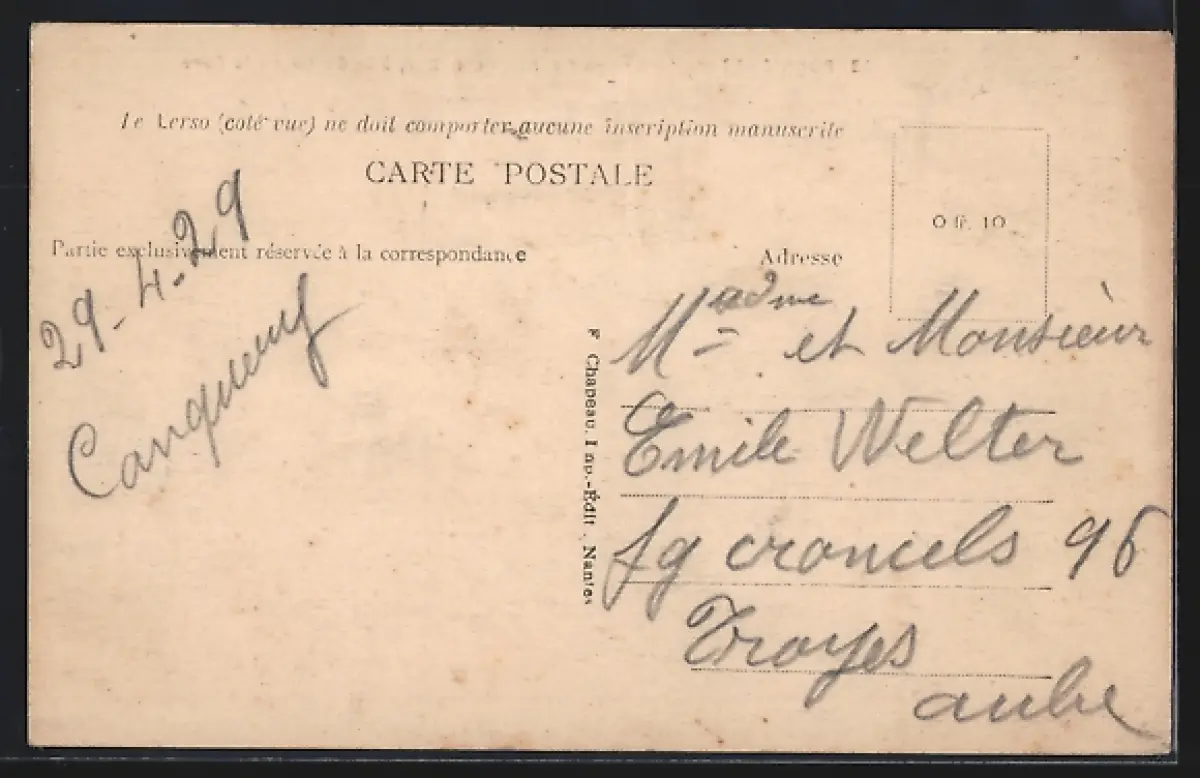 Le Verso (coté vue) ne doit comporter aucune inscription manuscrite
CARTE POSTALE
Partie exclusivement réservée à la correspondance
29-4-29
Adresse
0 fr. 10
Madme et Monsieur
Emile Welter
fg croncels 96
Troyes
aube
F. Chapeau, Imp.-Édit., Nantes